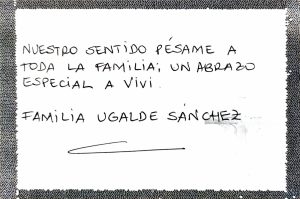 NUESTRO SENTIDO PÉSAME A
TODA LA FAMILIA; UN ABRAZO
ESPECIAL A VIVI.
FAMILIA UGALDE SÁNCHEZ